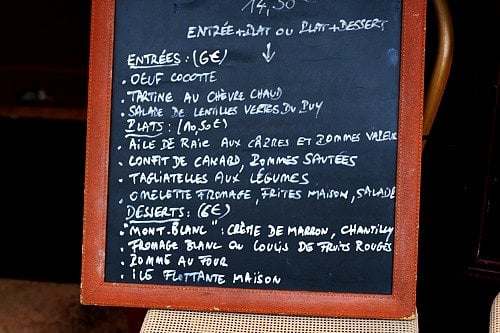 14,50€
ENTRÉE+PLAT OU PLAT+DESSERT
ENTRÉES : (6€)
. OEUF COCOTTE
. TARTINE AU CHÈVRE CHAUD
. SALADE DE LENTILLES VERTES DU PUY
PLATS : (10,50€)
. AILE DE RAIE AUX CÂPRES ET POMMES VAPEUR
. CONFIT DE CANARD, POMMES SAUTÉES
. TAGLIATELLES AUX LÉGUMES
. OMELETTE FROMAGE, FRITES MAISON, SALADE
DESSERTS : (6€)
. "MONT-BLANC" : CRÈME DE MARRON, CHANTILLY
. FROMAGE BLANC OU COULIS DE FRUITS ROUGES
. POMME AU FOUR
. ILE FLOTTANTE MAISON